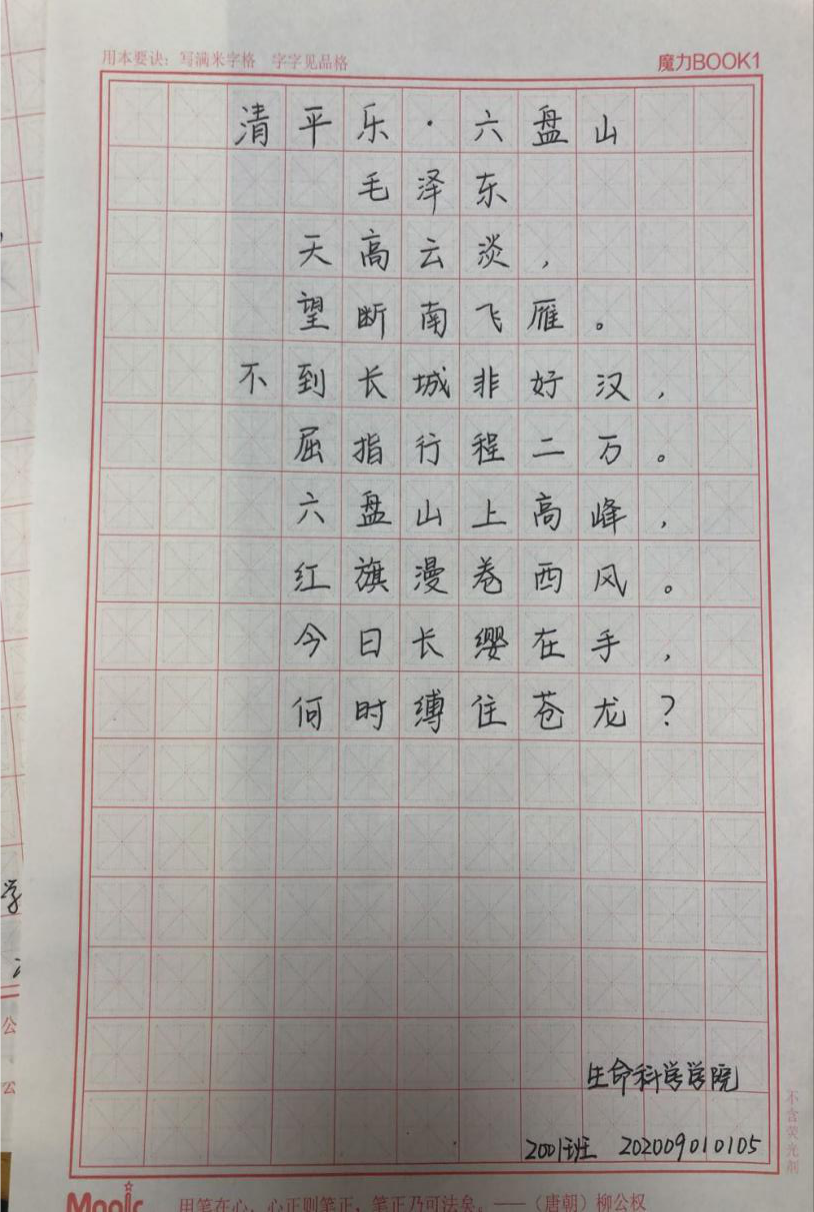 用本要诀：写满米字格 字字见品格 魔力BOOK1
清平乐·六盘山
毛泽东
天高云淡，
望断南飞雁。
不到长城非好汉，
屈指行程二万。
六盘山上高峰，
红旗漫卷西风。
今日长缨在手，
何时缚住苍龙？
学
公
云
生命科学学院
2001班 202009010105
不含荧光剂
Magic 用笔在心，心正则笔正，笔正乃可法矣。——（唐朝）柳公权